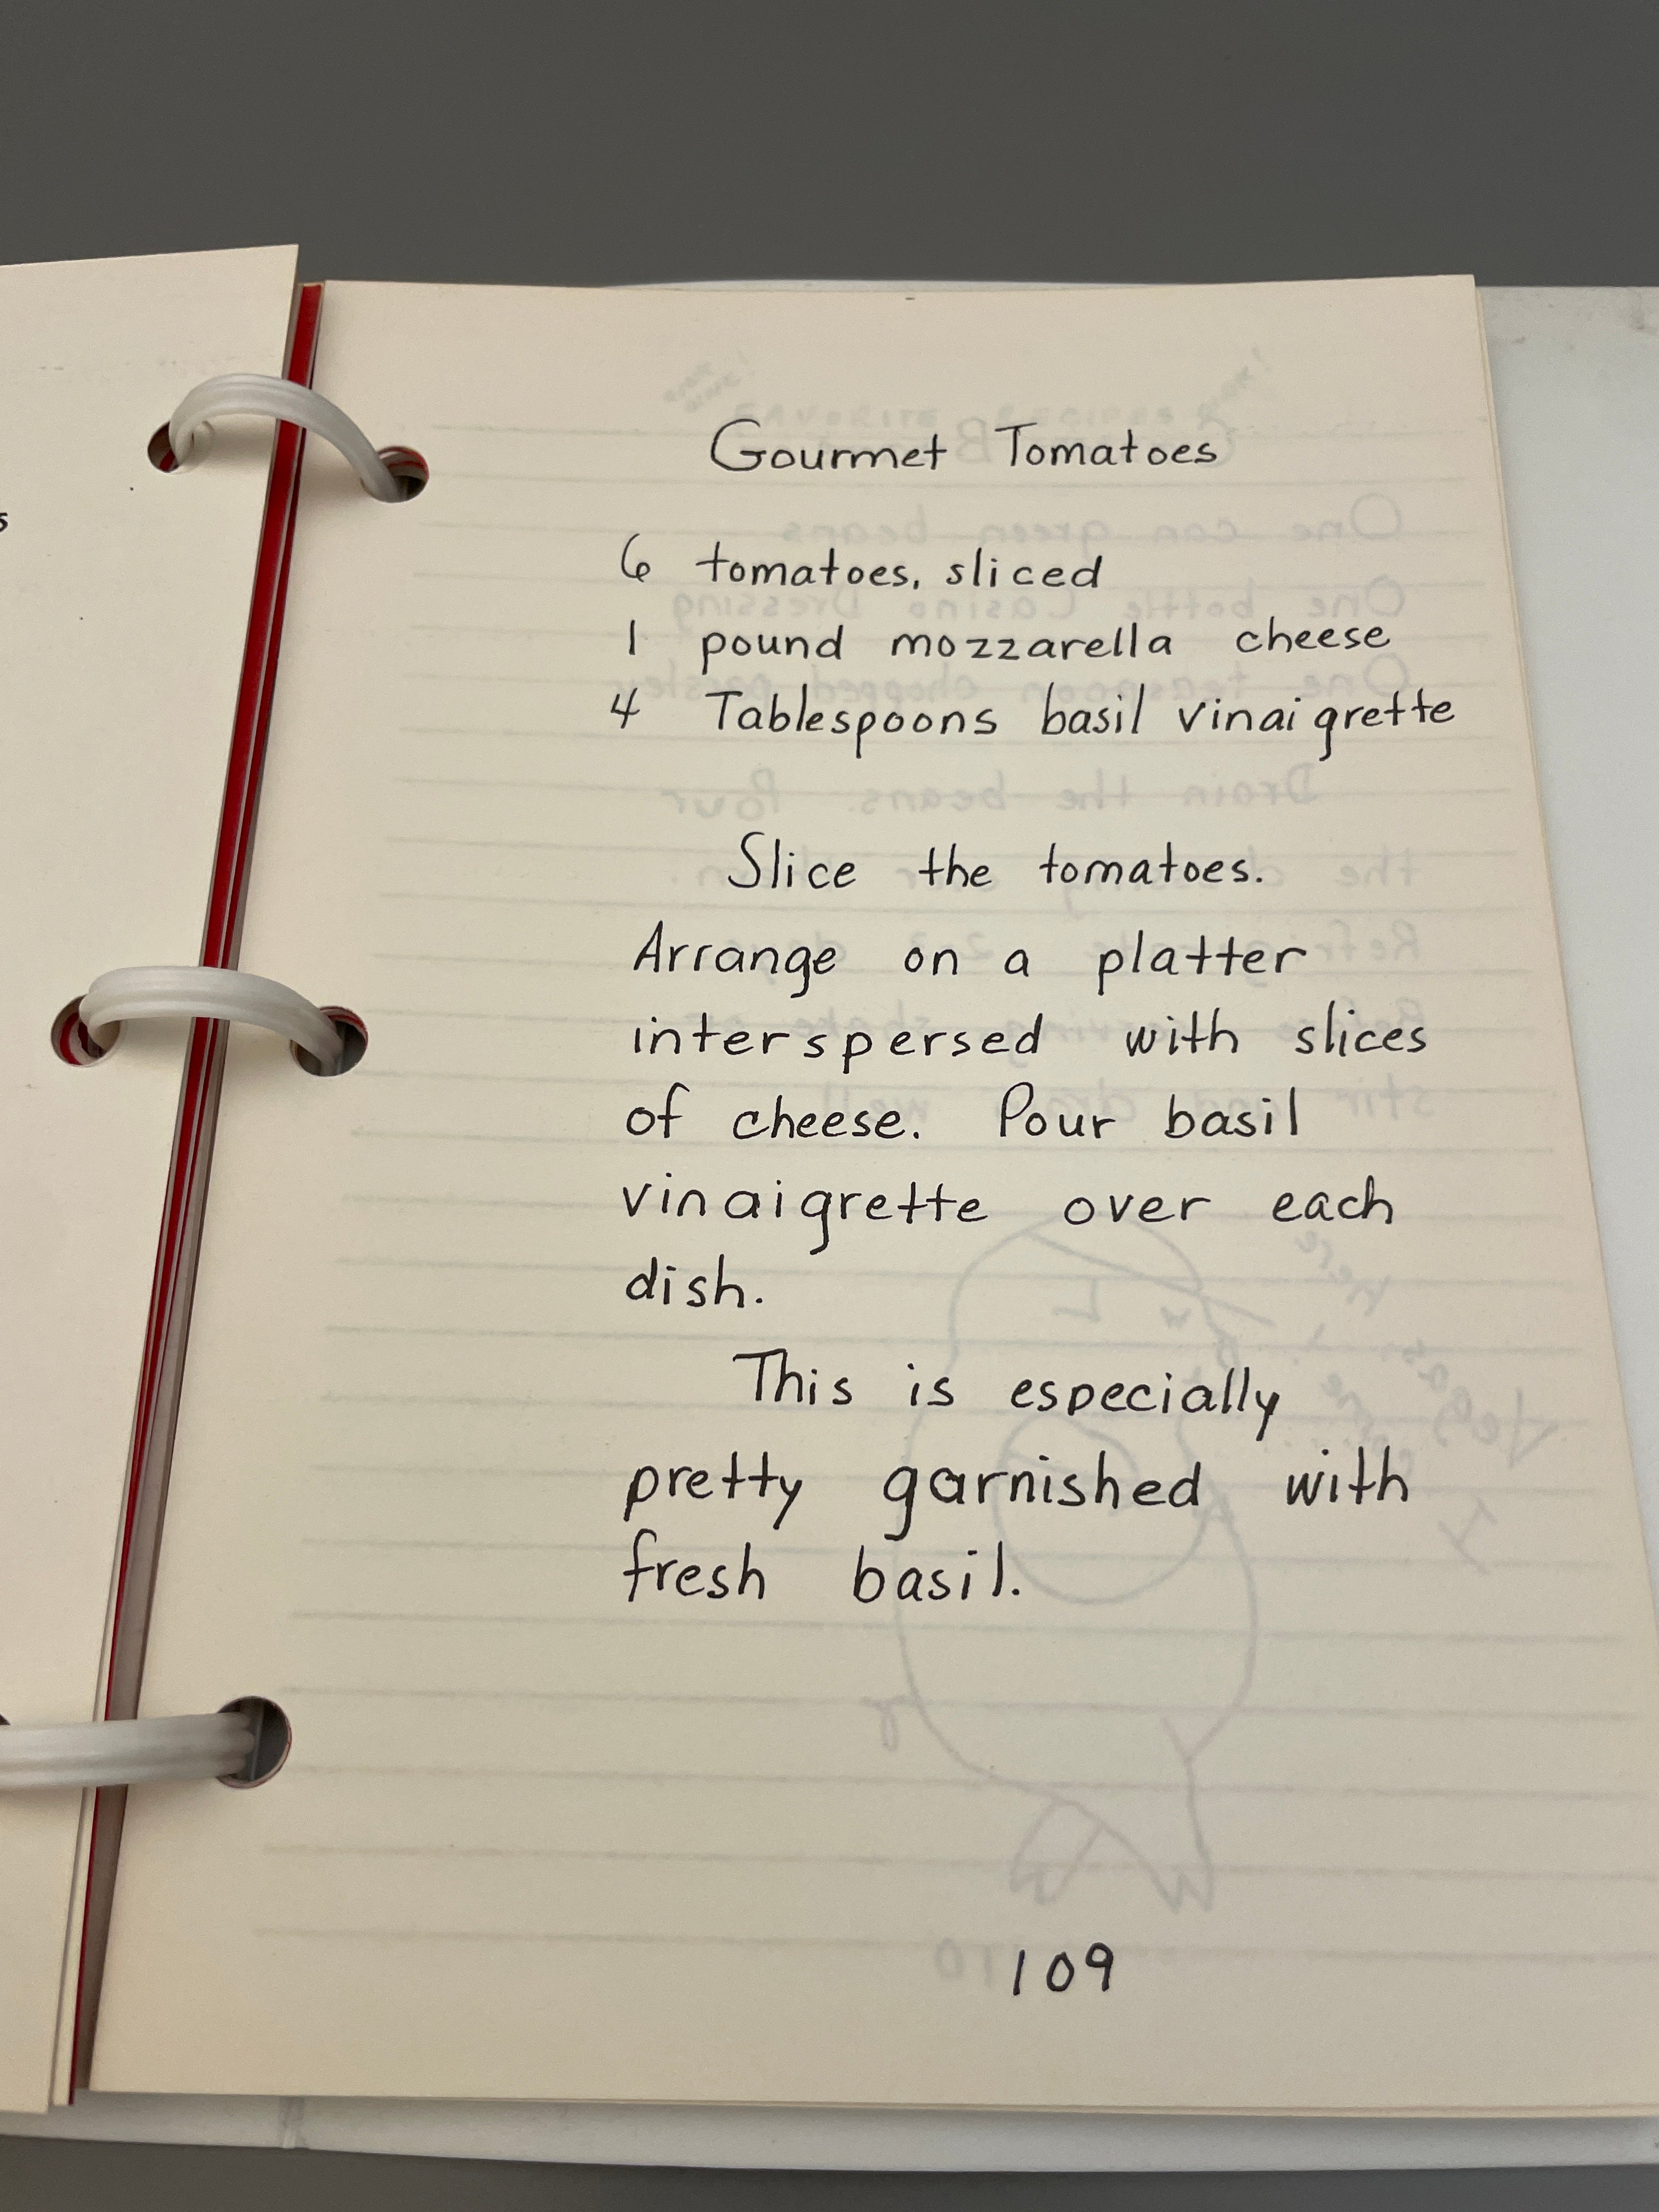 Gourmet Tomatoes
6 tomatoes, sliced
1 pound mozzarella cheese
4 Tablespoons basil vinaigrette
Slice the tomatoes.
Arrange on a platter
interspersed with slices
of cheese. Pour basil
vinaigrette over each
dish.
This is especially
pretty garnished with
fresh basil.
109